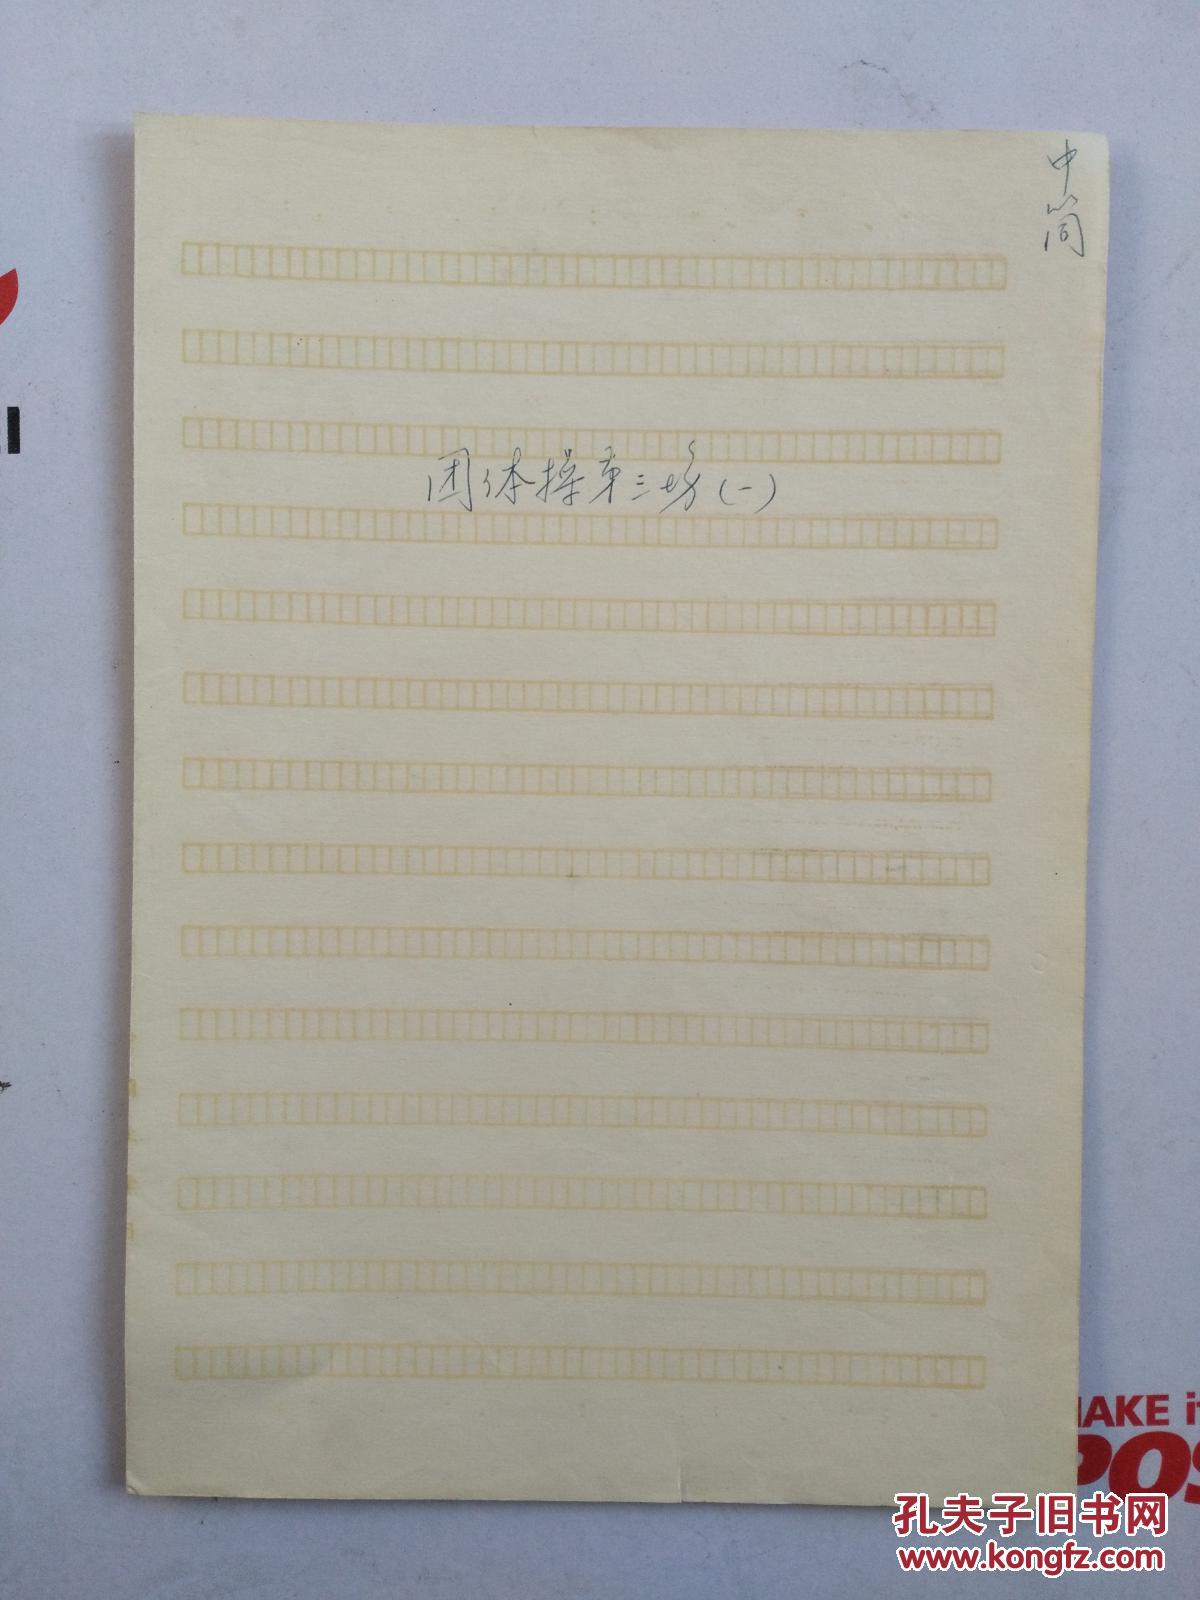 中筒
团体操第三场(一)
MAKE it
POS
孔夫子旧书网
www.kongfz.com